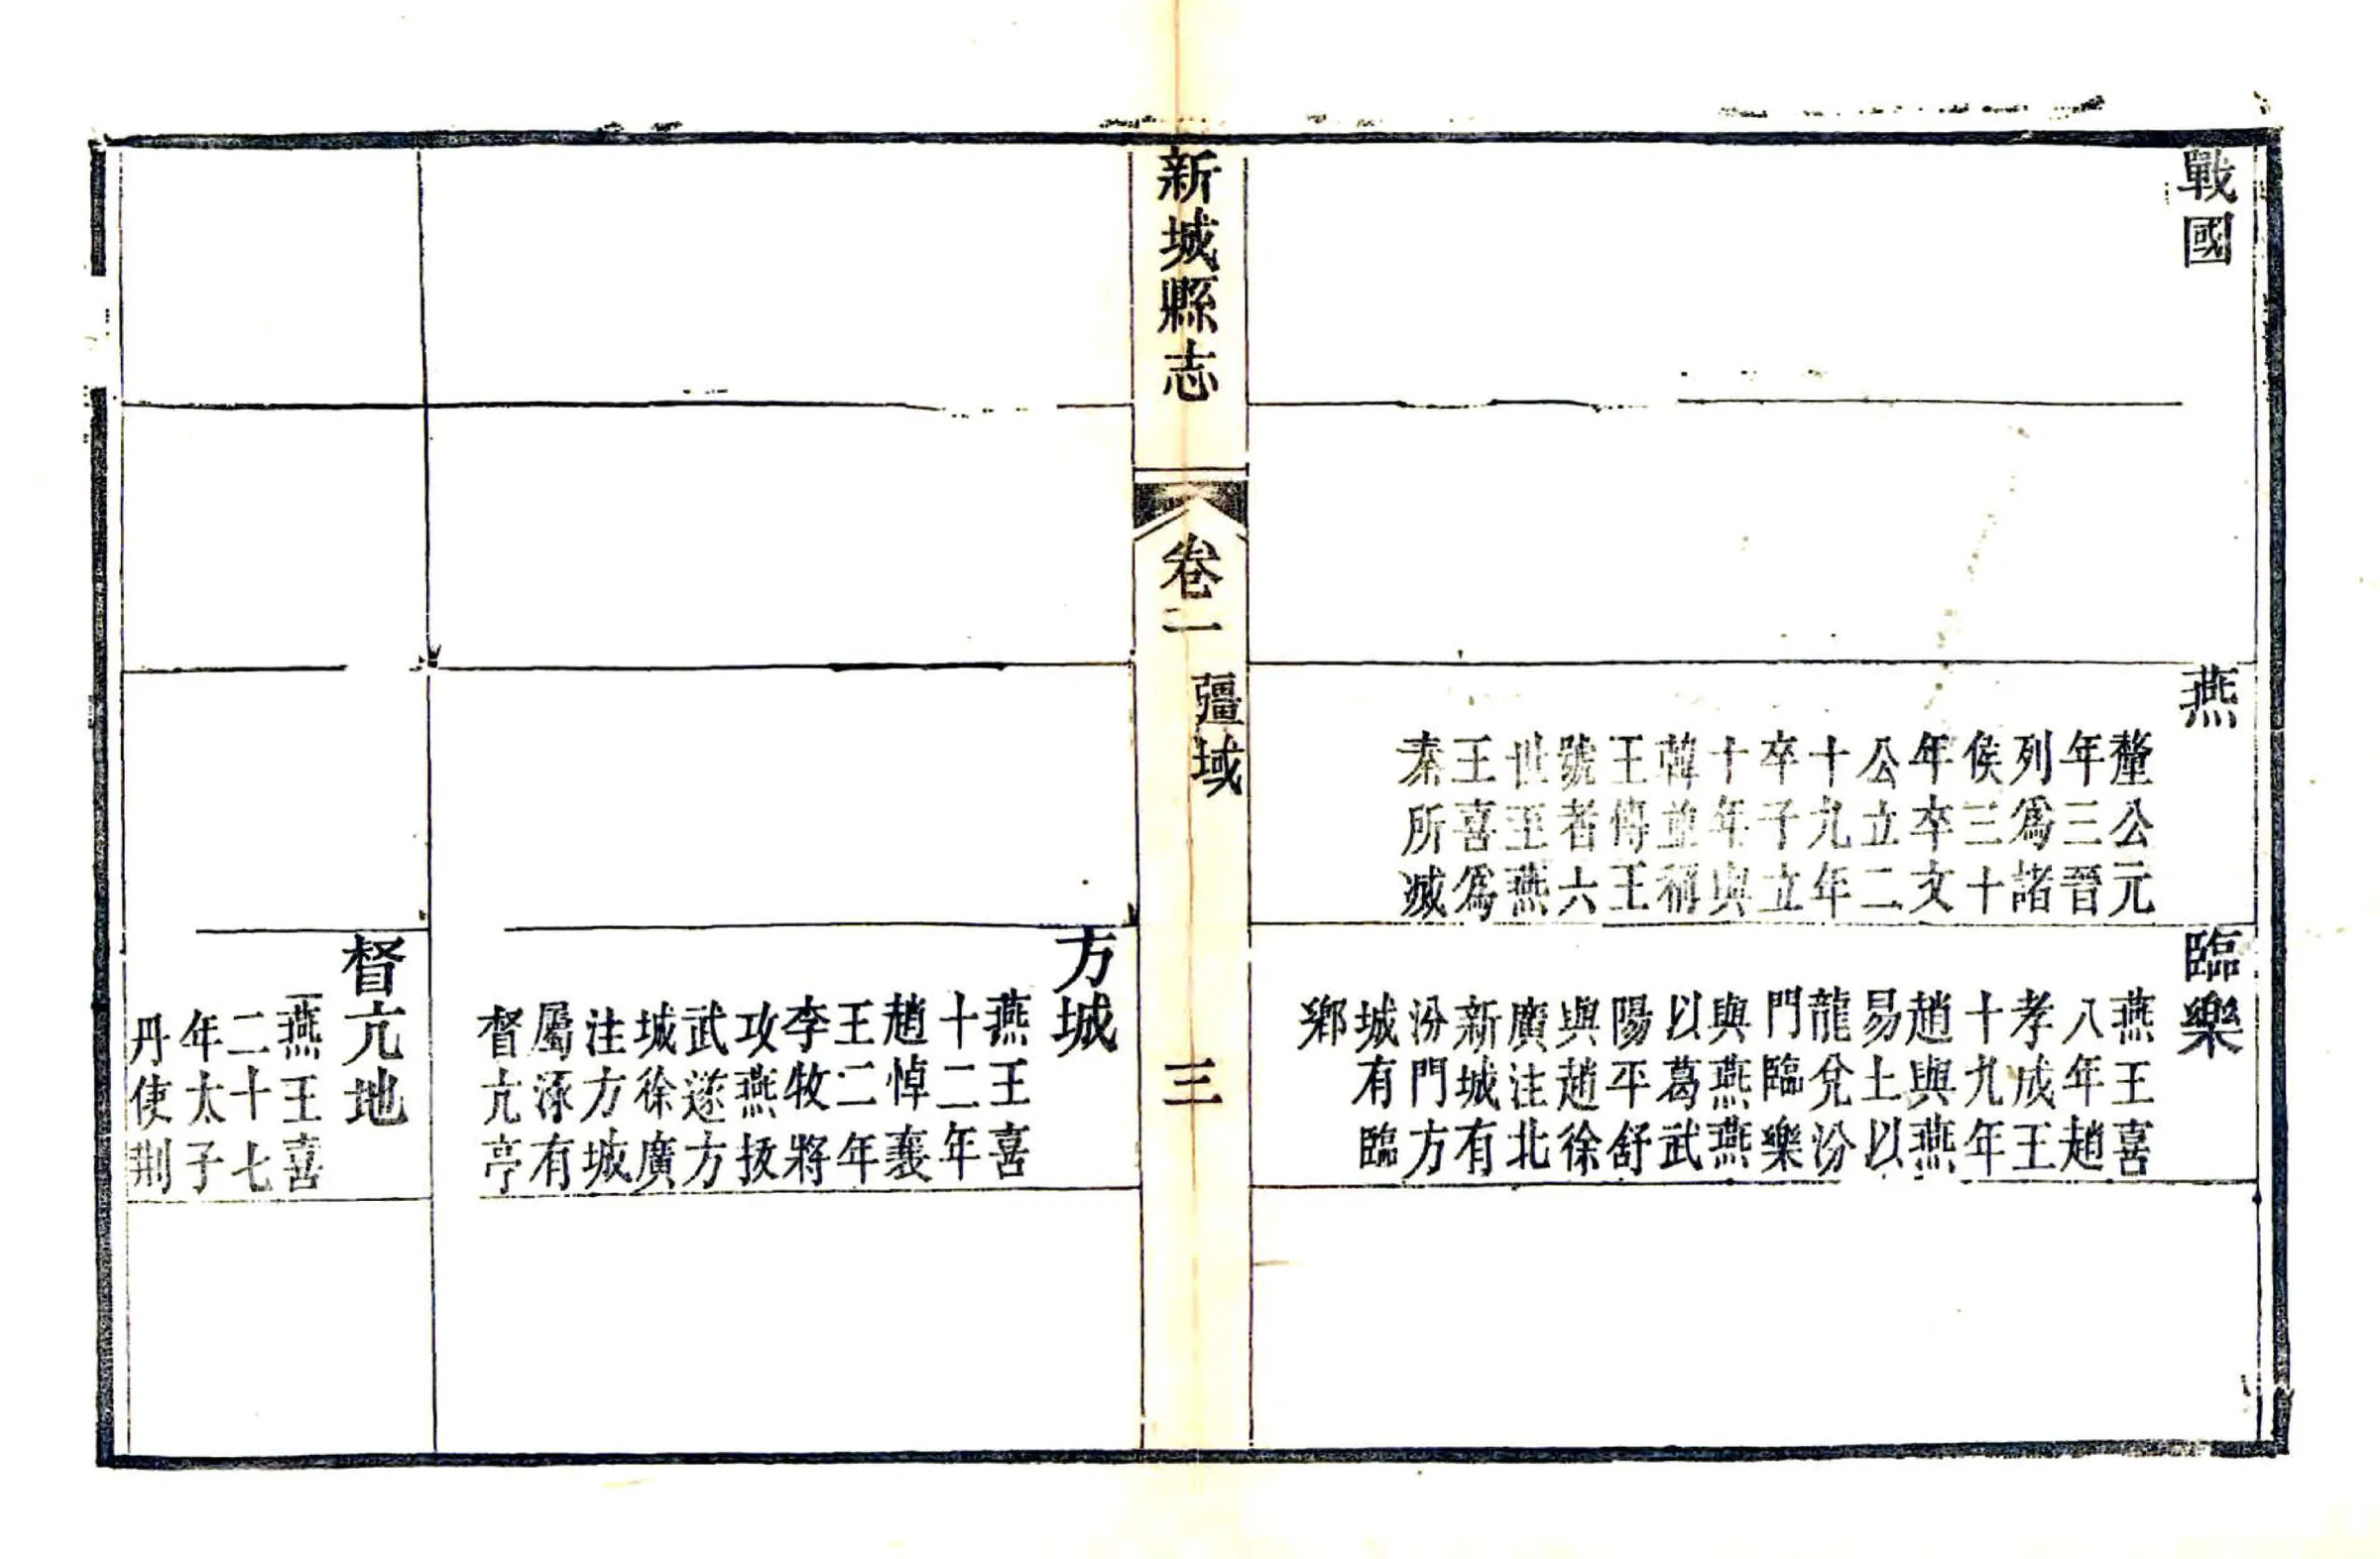 戰國
燕
釐公元
年三晉
列爲諸
侯三十
年卒文
公立二
十九年
卒子立
十年與
韓並稱
王傳王
號者六
世至燕
王喜爲
秦所滅
臨樂
燕王喜
八年趙
孝成王
十九年
趙與燕
易土以
龍兌汾
門臨樂
與燕燕
以葛武
陽平舒
與趙徐
廣注北
新城有
汾門方
城有臨
鄉
新城縣志
卷二
疆域
三
方城
燕王喜
十二年
趙悼襄
王二年
李牧將
攻燕拔
武遂方
城徐廣
注方城
屬涿有
督亢亭
督亢地
燕王喜
二十七
年太子
丹使荆